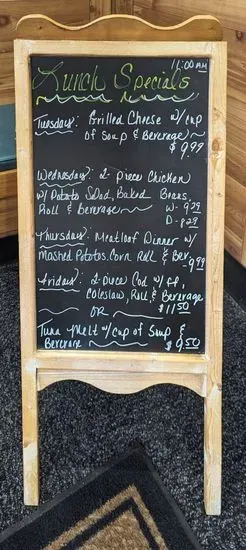 11:00 AM
Lunch Specials
Tuesday: Grilled Cheese w/cup
of Soup & Beverage
$9.99
Wednesday: 2-Piece Chicken
w/ Potato Salad, Baked Beans,
Roll & Beverage W- 9.29
D- 8.29
Thursday: Meatloaf Dinner w/
Mashed Potatos, Corn, Roll & Bev
-9.99
Friday: 2-Piece Cod w/ FF,
Coleslaw, Roll, & Beverage
OR $11.50
Tuna Melt w/cup of Soup &
Beverage $9.50